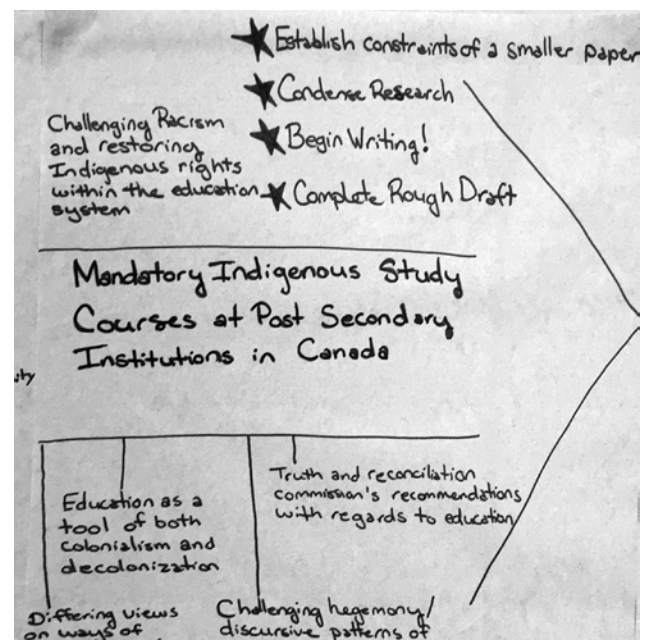 Establish constraints of a smaller paper
Condense Research
Begin Writing!
Complete Rough Draft
Challenging Racism
and restoring
Indigenous rights
within the education
system
Mandatory Indigenous Study
Courses at Post Secondary
Institutions in Canada
ity
Education as a
tool of both
colonialism and
decolonization
Truth and reconciliation
commission's recommendations
with regards to education
Differing views
on ways of
Challenging hegemony/
discursive patterns of